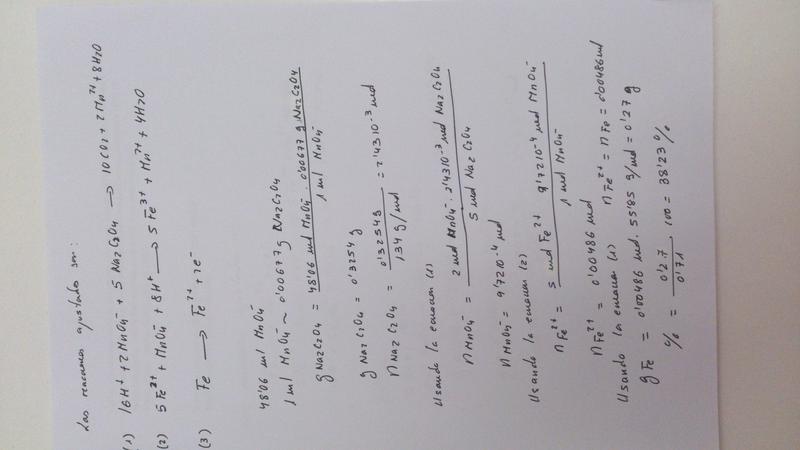 Las reacciones ajustadas son:
(1) 16H⁺ + 2MnO₄⁻ + 5 Na₂C₂O₄ → 10CO₂ + 2Mn²⁺ + 8H₂O
(2) 5Fe²⁺ + MnO₄⁻ + 8H⁺ → 5Fe³⁺ + Mn²⁺ + 4H₂O
(3) Fe → Fe²⁺ + 2e⁻
48'06 ml MnO₄⁻
1 ml MnO₄⁻ ~ 0'00677 g Na₂C₂O₄
g Na₂C₂O₄ = 48'06 ml MnO₄⁻ · 0'00677 g Na₂C₂O₄
1 ml MnO₄⁻
g Na₂C₂O₄ = 0'3254 g
n Na₂C₂O₄ = 0'3254g / 134 g/mol = 2'43 10⁻³ mol
Usando la ecuación (1)
n MnO₄⁻ = 2 mol MnO₄⁻ · 2'43 10⁻³ mol Na₂C₂O₄
5 mol Na₂C₂O₄
n MnO₄⁻ = 9'72 10⁻⁴ mol
Usando la ecuación (2)
n Fe²⁺ = 5 mol Fe²⁺ 9'72 10⁻⁴ mol MnO₄⁻
1 mol MnO₄⁻
n Fe²⁺ = 0'00486 mol
Usando la ecuación (1) n Fe²⁺ = n Fe = 0'00486 mol
g Fe = 0'00486 mol · 55'85 g/mol = 0'27 g
% = 0'27 / 0'71 · 100 = 38'23 %